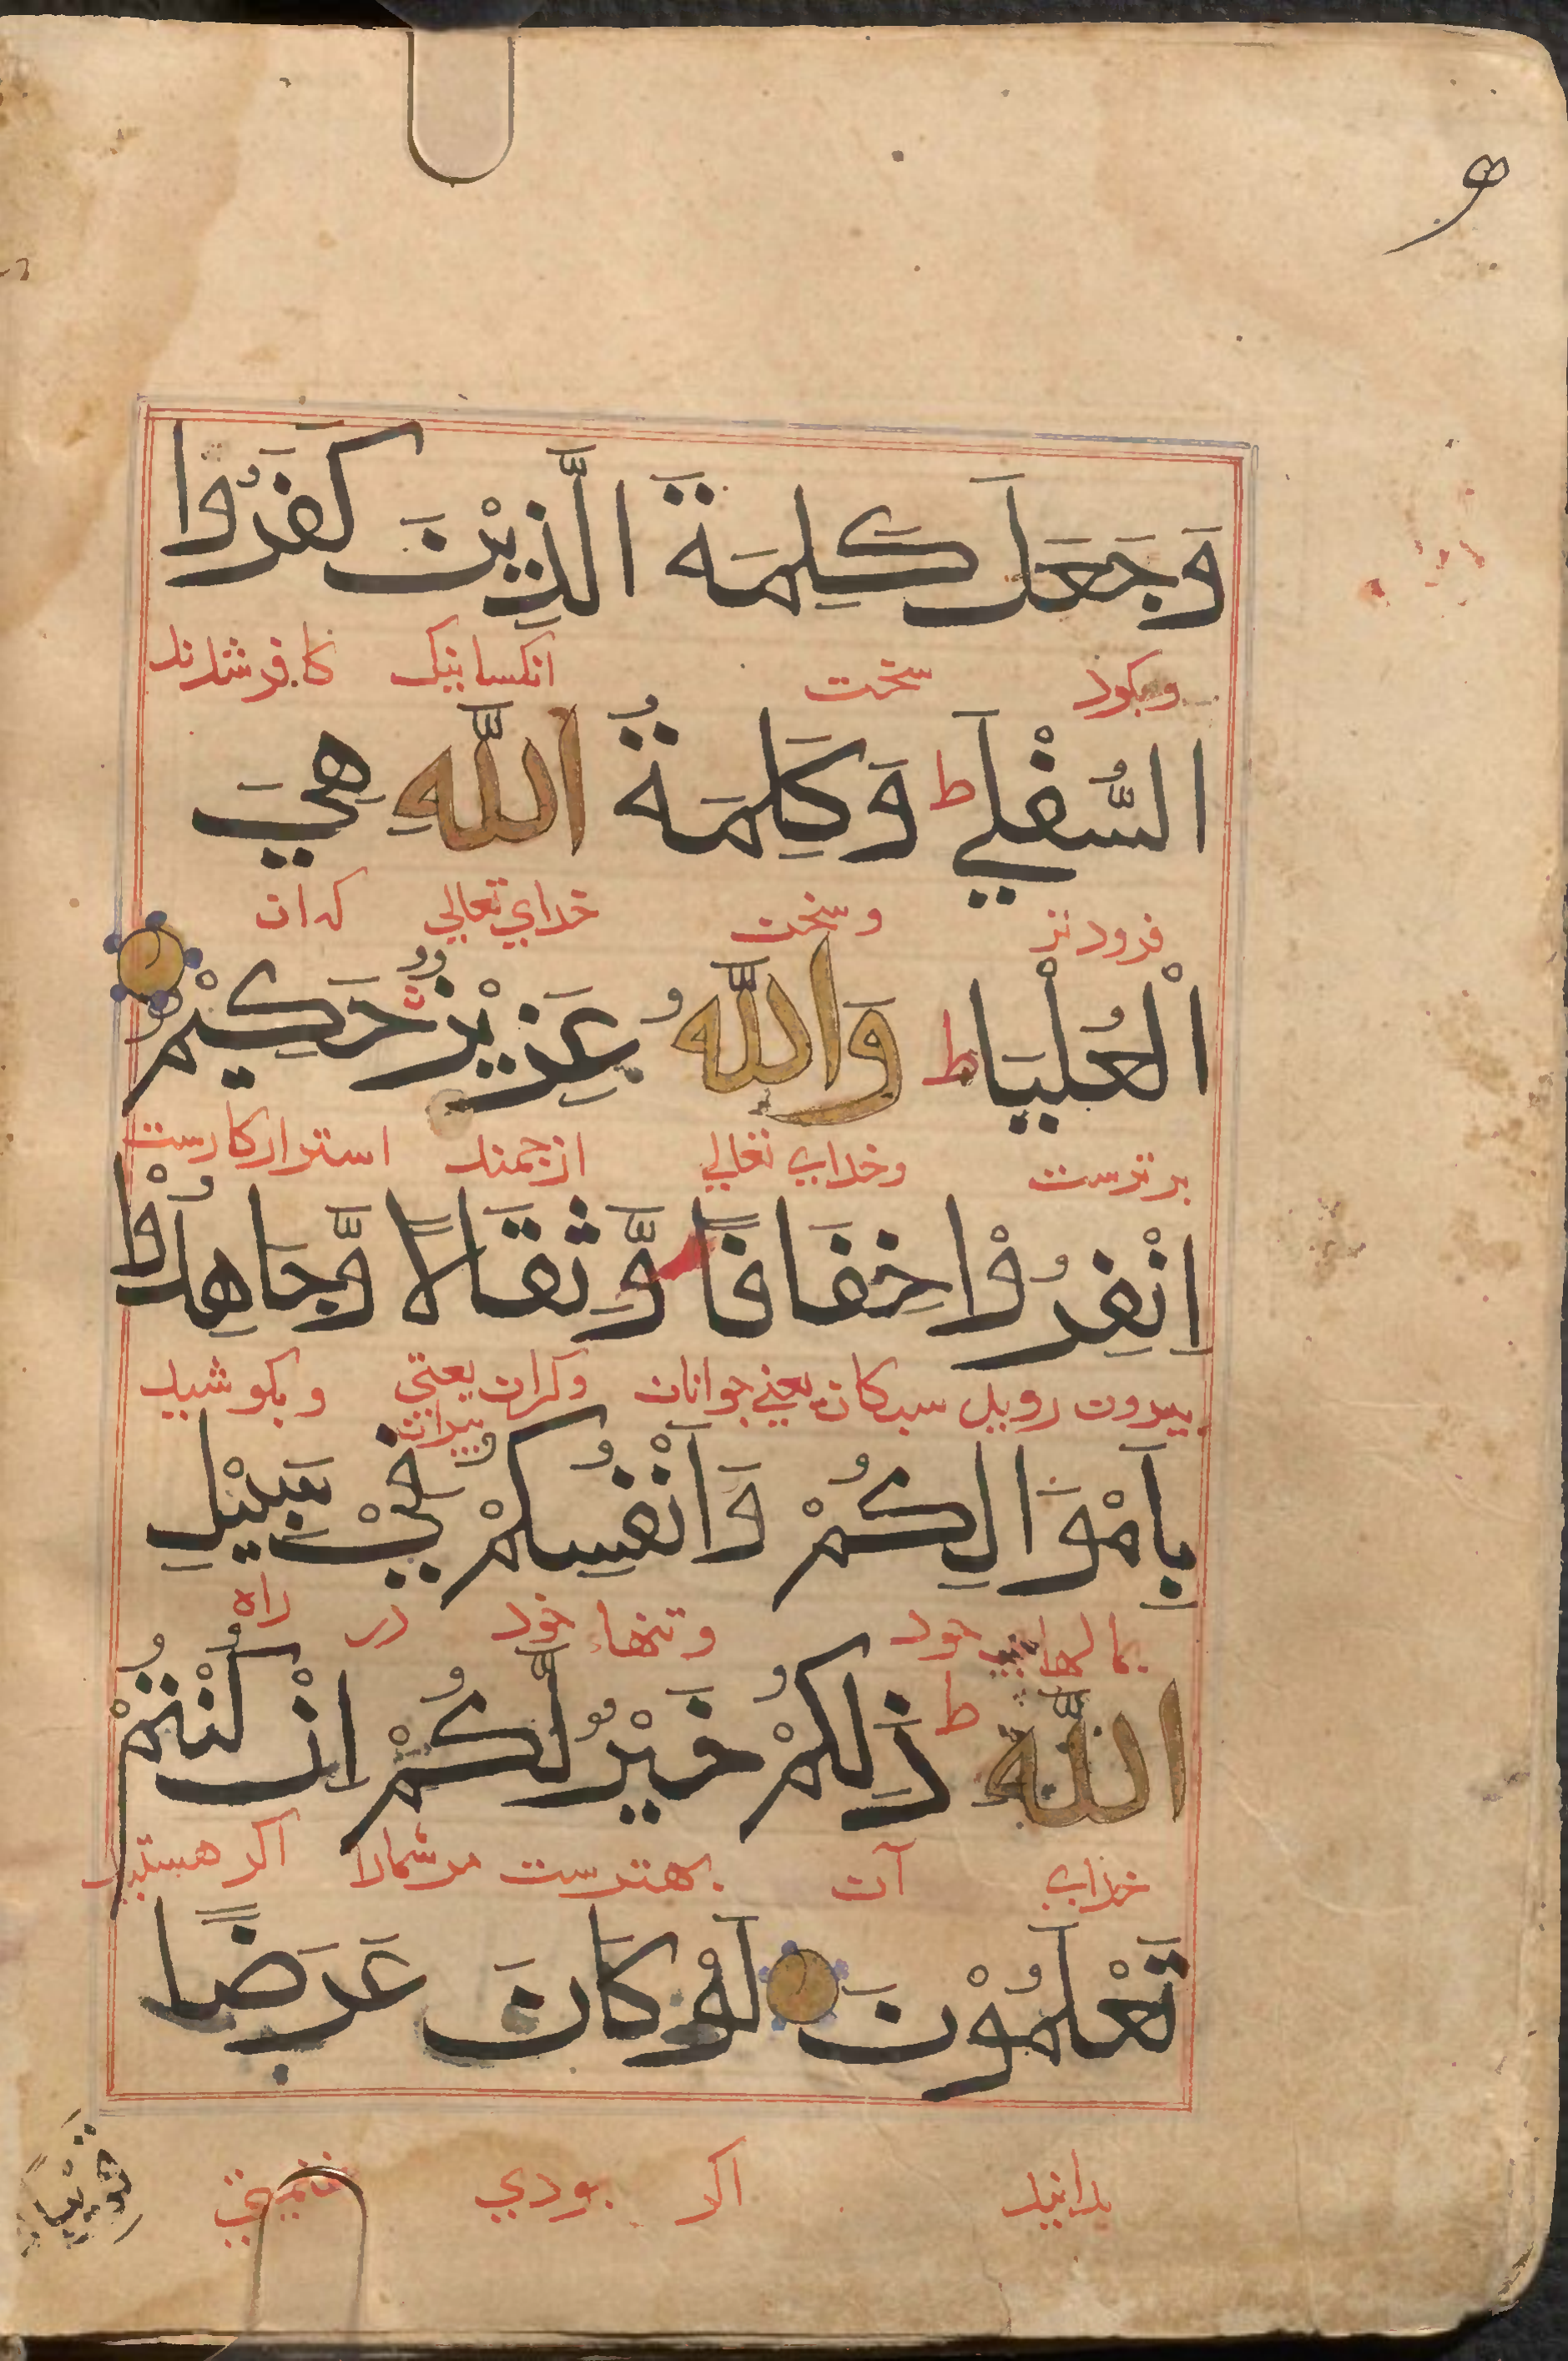 وَجَعَلَ كَلِمَةَ الَّذِيْنَ كَفَرُوا
وبكرد سخن انكسانيك كافر شدند
السُّفْلَي ط وَكَلِمَةُ اللَّهِ هِيَ
فرودتر وسخن خداي تعالي كه ان
الْعُلْيَا ط وَاللَّهُ عَزِيْزٌ حَكِيْمٌ
برترست وخداي تعالي ارجمند استوار كارست
اِنْفِرُوْا خِفَافًا وَّثِقَالًا وَّجَاهِدُوْا
بيرون رويد سبكان يعني جوانان وكران يعني پيران وبكوشيد
بِاَمْوَالِكُمْ وَاَنْفُسِكُمْ فِيْ سَبِيْلِ
بمالهاي خود وتنهاء خود در راه
اللَّهِ ط ذَلِكُمْ خَيْرٌ لَّكُمْ اِنْ كُنْتُمْ
خداي آن بهترست مر شمارا اكر هستيد
تَعْلَمُوْنَ لَوْ كَانَ عَرَضًا
بدانيد اكر بودي غنيمتي
قَرِيْبًا